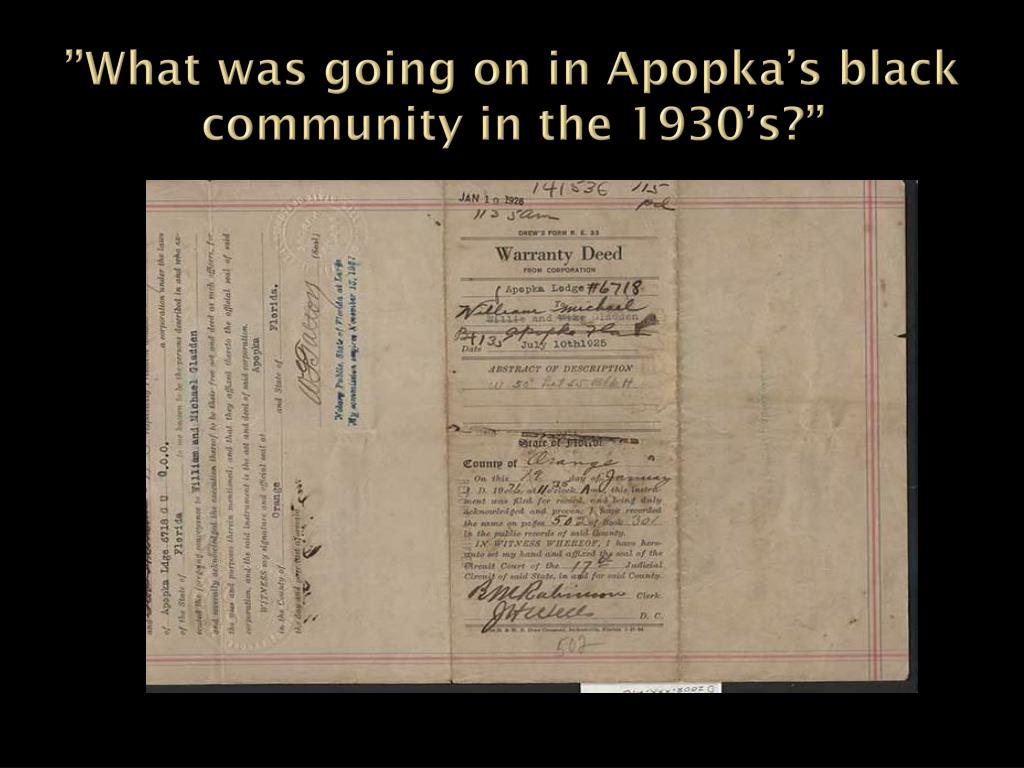 ”What was going on in Apopka’s black
community in the 1930’s?”
a corporation under the laws
of Apopka Ldge 6718 G U O.O.O.
of the State of Florida to me known to be the persons described in and who ex-
the foregoing conveyance to William and Michael Gladden
and severally acknowledged the execution thereof to be their free act and deed as such officers, for
the uses and purposes therein mentioned; and that they affixed thereto the official seal of said
corporation, and the said instrument is the act and deed of said corporation.
WITNESS my signature and official seal at Apopka
in the County of Orange and State of Florida,
the day and year
(Seal)
Notary Public, State of Florida at Large
My commission expires November 15, 1927
141536 115
JAN 19 1926 pd
1135am
DREW'S FORM R. E. 33
Warranty Deed
FROM CORPORATION
Apopka Lodge #6718
To
William Michael
Willie and Gladden
Apopka Fla
Date July 10th1925
ABSTRACT OF DESCRIPTION
State of Florida
County of Orange
On this 19 day of January
A. D. 19 at 11 o'clock A m., this instru-
ment was filed for record, and being duly
acknowledged and proven, I have recorded
the same on pages 502 of Book 301
in the public records of said County.
IN WITNESS WHEREOF, I have here-
unto set my hand and affixed the seal of the
Circuit Court of the 17th Judicial
Circuit of said State, in and for said County.
B M Robinson Clerk.
D. C.
502